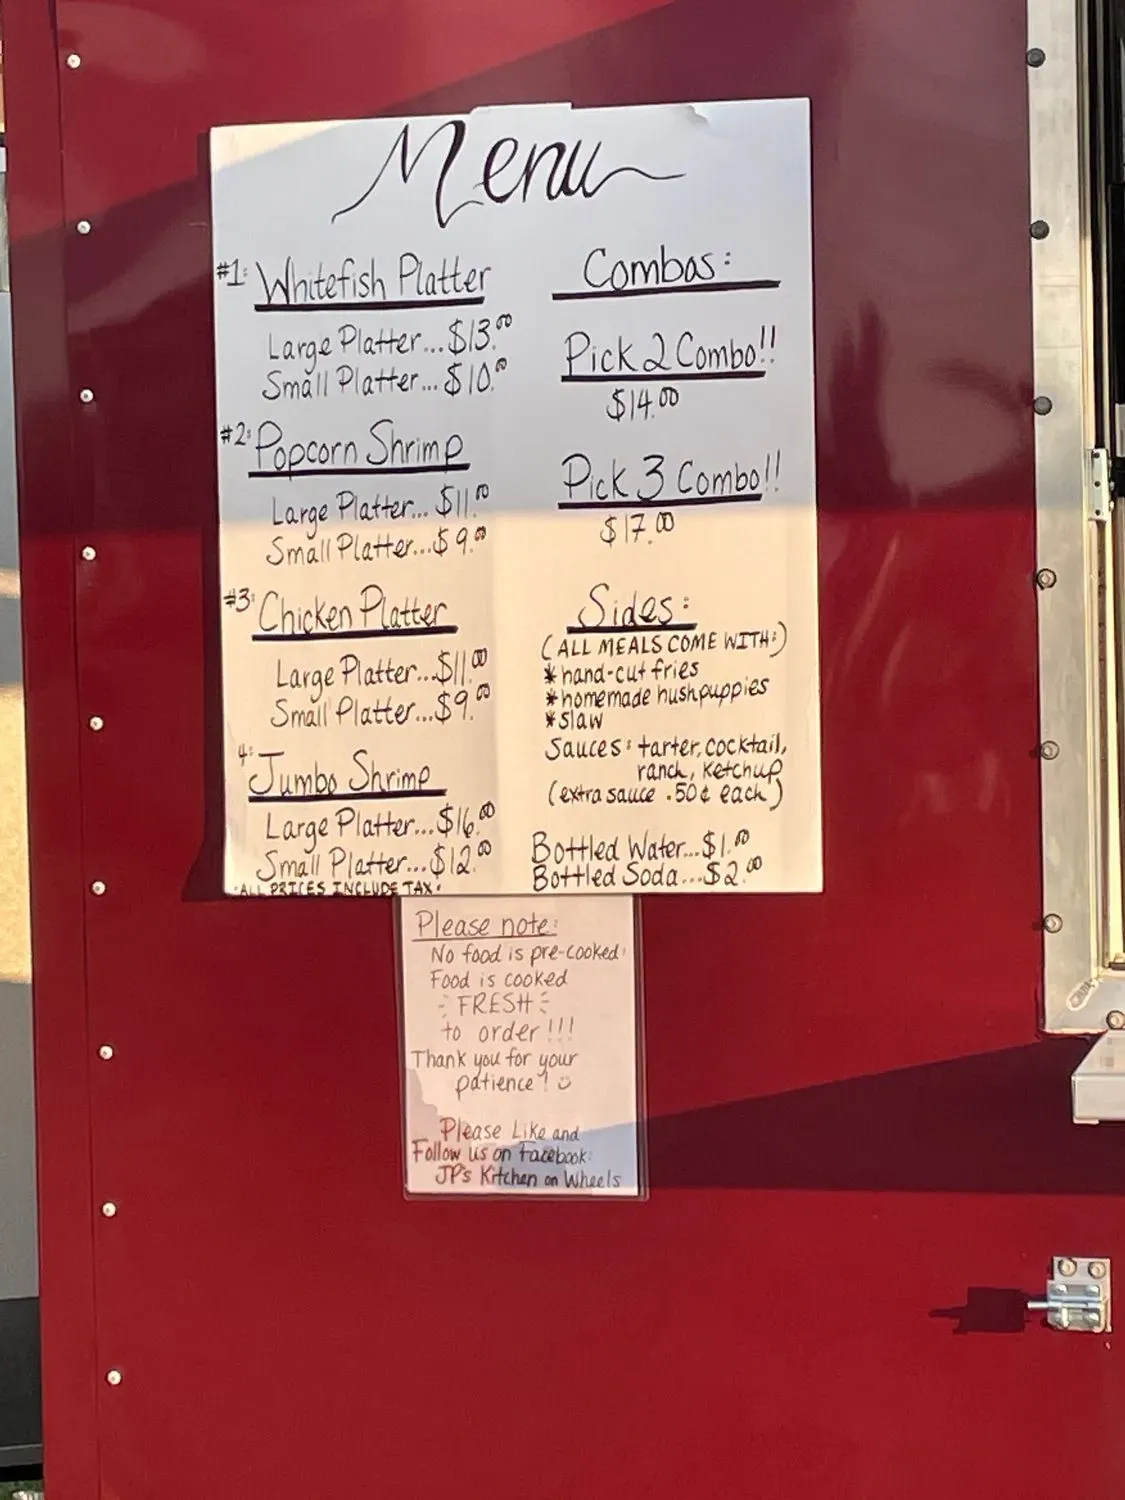 Menu
#1: Whitefish Platter
Large Platter...$13.00
Small Platter...$10.00
#2: Popcorn Shrimp
Large Platter...$11.00
Small Platter...$9.00
#3: Chicken Platter
Large Platter...$11.00
Small Platter...$9.00
4: Jumbo Shrimp
Large Platter...$16.00
Small Platter...$12.00
•ALL PRICES INCLUDE TAX•
Combos:
Pick 2 Combo!!
$14.00
Pick 3 Combo!!
$17.00
Sides:
(ALL MEALS COME WITH:)
*hand-cut fries
*homemade hushpuppies
*slaw
Sauces: tarter, cocktail,
ranch, ketchup
(extra sauce .50¢ each)
Bottled Water...$1.00
Bottled Soda...$2.00
Please note:
No food is pre-cooked.
Food is cooked
FRESH
to order!!!
Thank you for your
patience! ☺
Please Like and
Follow us on Facebook:
JP's Kitchen on Wheels